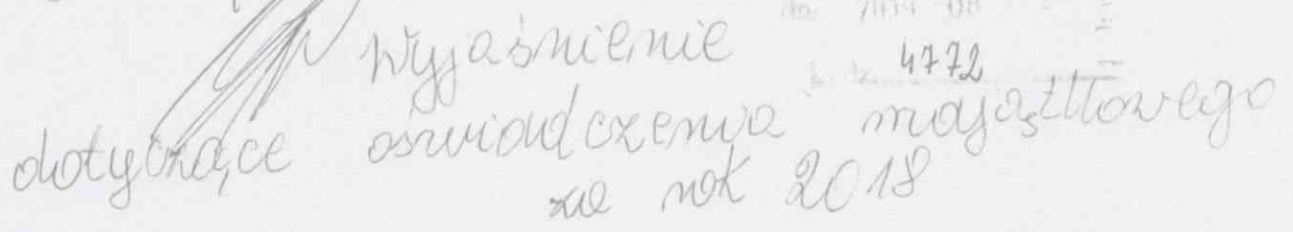 Wyjaśnienie
4772
dotyczące oświadczenia majątkowego
za rok 2018